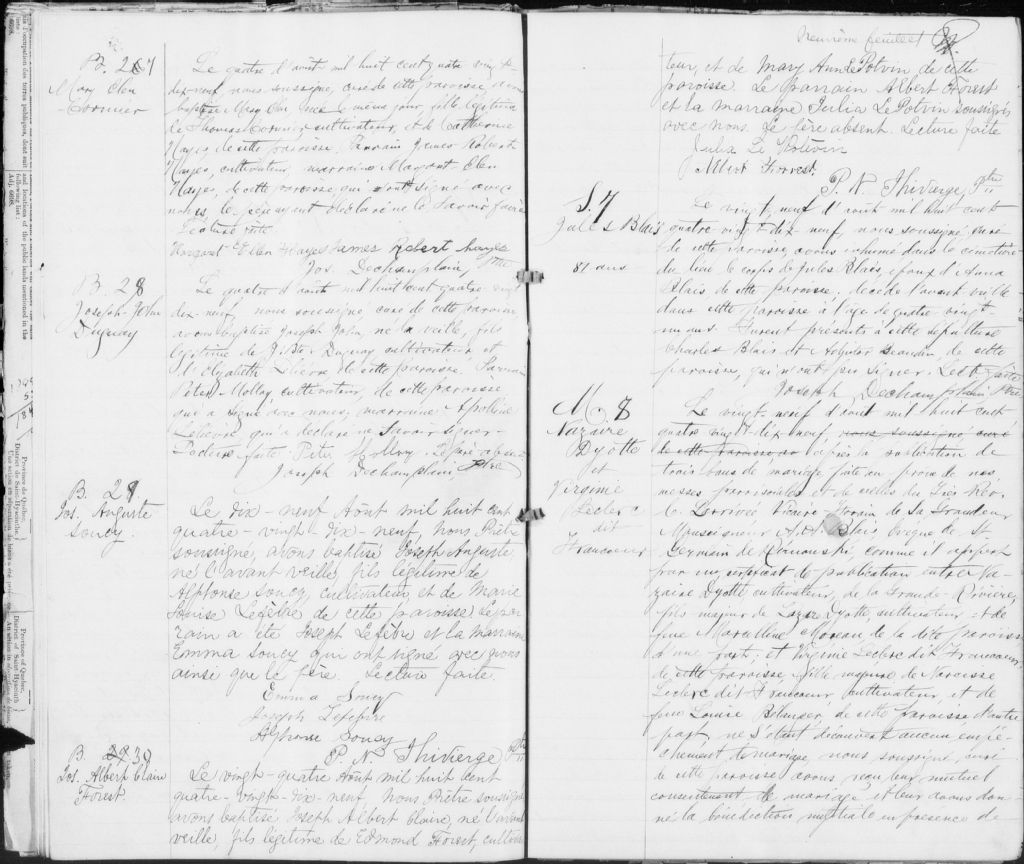 B. 27
Mary Elen
Cormier
Le quatre d'août mil huit cent quatre vingt
dix-neuf, nous soussigné, curé de cette paroisse, avons
baptisé Mary Elen née le même jour, fille légitime
de Thomas Cormier cultivateur, et de Catherine
Hayes, de cette paroisse. Parrain James Robert
Hayes, cultivateur, marraine Margaret Elen
Hayes, de cette paroisse qui ont signé avec
nous, le père ayant déclaré ne le savoir faire
Lecture faite
Margaret Ellen Hayes James Robert Hayes
Jos. Dechamplain, Ptre
B. 28
Joseph John
Duguay
Le quatre d'août mil huit cent quatre vingt
dix-neuf, nous soussigné, curé de cette paroisse
avons baptisé Joseph John, né la veille, fils
légitime de Duguay cultivateur et
d'Elizabeth Lelièvre de cette paroisse. Parrain
Peter Molloy, cultivateur, de cette paroisse
qui a signé avec nous, marraine Apoline
Lelièvre qui a déclaré ne savoir signer.
Lecture faite. Peter Molloy. Le père absent
Joseph Dechamplain Ptre
B. 29
Jos. Auguste
Soucy.
Le dix-neuf Août mil huit cent
quatre-vingt-dix-neuf, Nous Prêtre
soussigné, avons baptisé Joseph Auguste,
né l'avant veille, fils légitime de
Alphonse Soucy, cultivateur, et de Marie
Louise Lefebre de cette paroisse. Le par
rain a été Joseph Lefebre et la marraine
Emma Soucy qui ont signé avec nous
ainsi que le père. Lecture faite.
Emma Soucy
Joseph Lefebvre
Alphonse Soucy
P. N. Thivierge Ptre
B. 30
Jos. Albert Claire
Forest.
Le vingt-quatre Août mil huit cent
quatre-vingt-dix-neuf, Nous Prêtre soussigné
avons baptisé Joseph Albert Claire, né l'avant
veille, fils légitime de Edmond Forest, cultiva
Neuvième feuillet
teur, et de Mary Ann Le Potvin, de cette
paroisse. Le parrain Albert Forest
et la marraine Julia Le Potvin soussignés
avec nous. Le père absent. Lecture faite
Julia Le Potevin
Albert Forrest.
P. N. Thivierge, Ptre
S. 7
Jules Blais
81 ans
Le vingt-neuf d'août mil huit cent
quatre vingt dix-neuf, nous soussigné curé
de cette paroisse, avons inhumé dans le cimetière
du lieu le corps de Jules Blais, époux d'Anna
Blais, de cette paroisse, décédé l'avant veille
dans cette paroisse à l'âge de quatre-vingt-
un ans. Furent présents à cette sépulture
Charles Blais et Adjutor Beaudin de cette
paroisse, qui n'ont pu signer. Lect. faite
Joseph Dechamplain Ptre
M. 8
Nazaire
Dyotte
et
Virginie
Leclerc
dit
Francoeur
Le vingt-neuf d'août mil huit cent
quatre vingt-dix-neuf, nous soussigné curé
de cette paroisse après la publication de
trois bans de mariage faite au prône de nos
messes paroissiales et de celles du Très Rév.
C. Vicaire forain de Sa Grandeur
Monseigneur A. A. Blais, évêque de St
Germain de Rimouski, comme il appert
par un certificat de publication entre Na-
zaire Dyotte cultivateur, de la Grande-Rivière,
fils majeur de Lazar Dyotte cultivateur et de
feue Marcelline Moreau, de la dite paroisse
d'une part; et Virginie Leclerc dit Francoeur
de cette paroisse, fille majeure de Narcisse
Leclerc dit Francoeur cultivateur, et de
feue Louise Bélanger, de cette paroisse d'autre
part, ne s'étant découvert aucun empê-
chement de mariage, nous soussigné, curé
de cette paroisse avons reçu leur mutuel
consentement de mariage et leur avons don-
né la bénédiction nuptiale en présence de